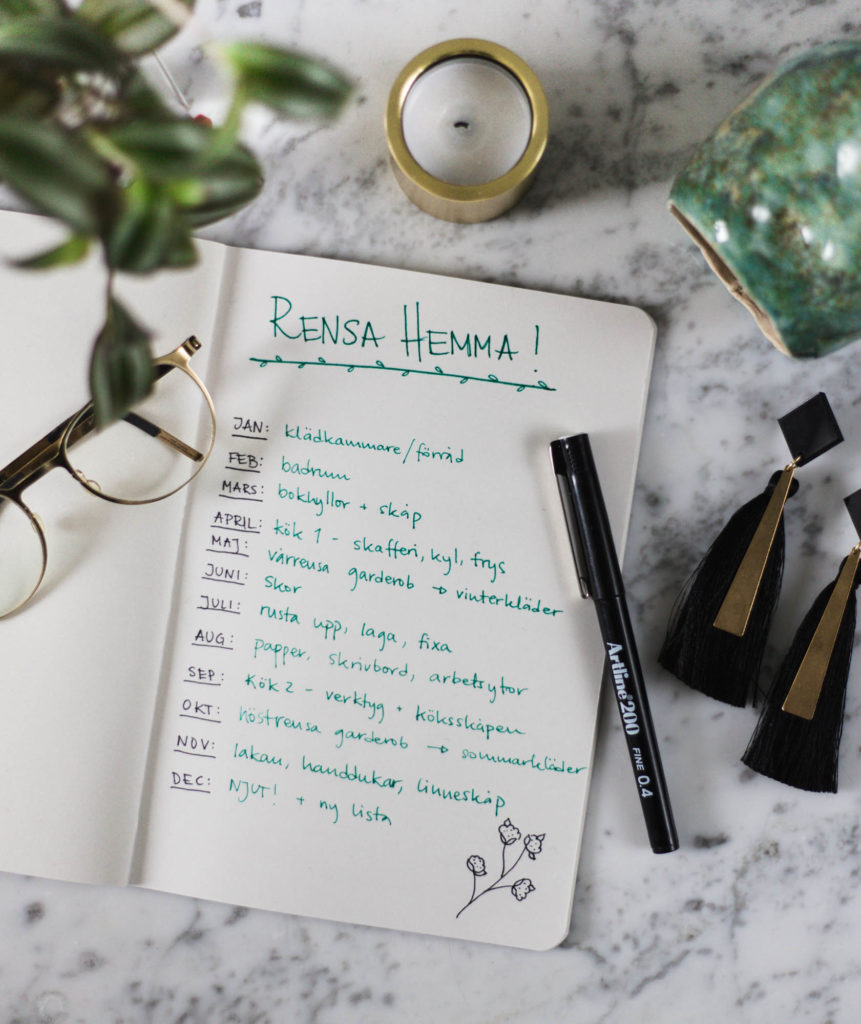 RENSA HEMMA!
JAN: klädkammare/förråd
FEB: badrum
MARS: bokhyllor + skåp
APRIL: kök 1 - skafferi, kyl, frys
MAJ: vårrensa garderob → vinterkläder
JUNI: skor
JULI: rusta upp, laga, fixa
AUG: papper, skrivbord, arbetsytor
SEP: Kök 2 - verktyg + köksskåpen
OKT: höstrensa garderob → sommarkläder
NOV: lakan, handdukar, linneskåp
DEC: NJUT! + ny lista
Artline®200 FINE 0.4